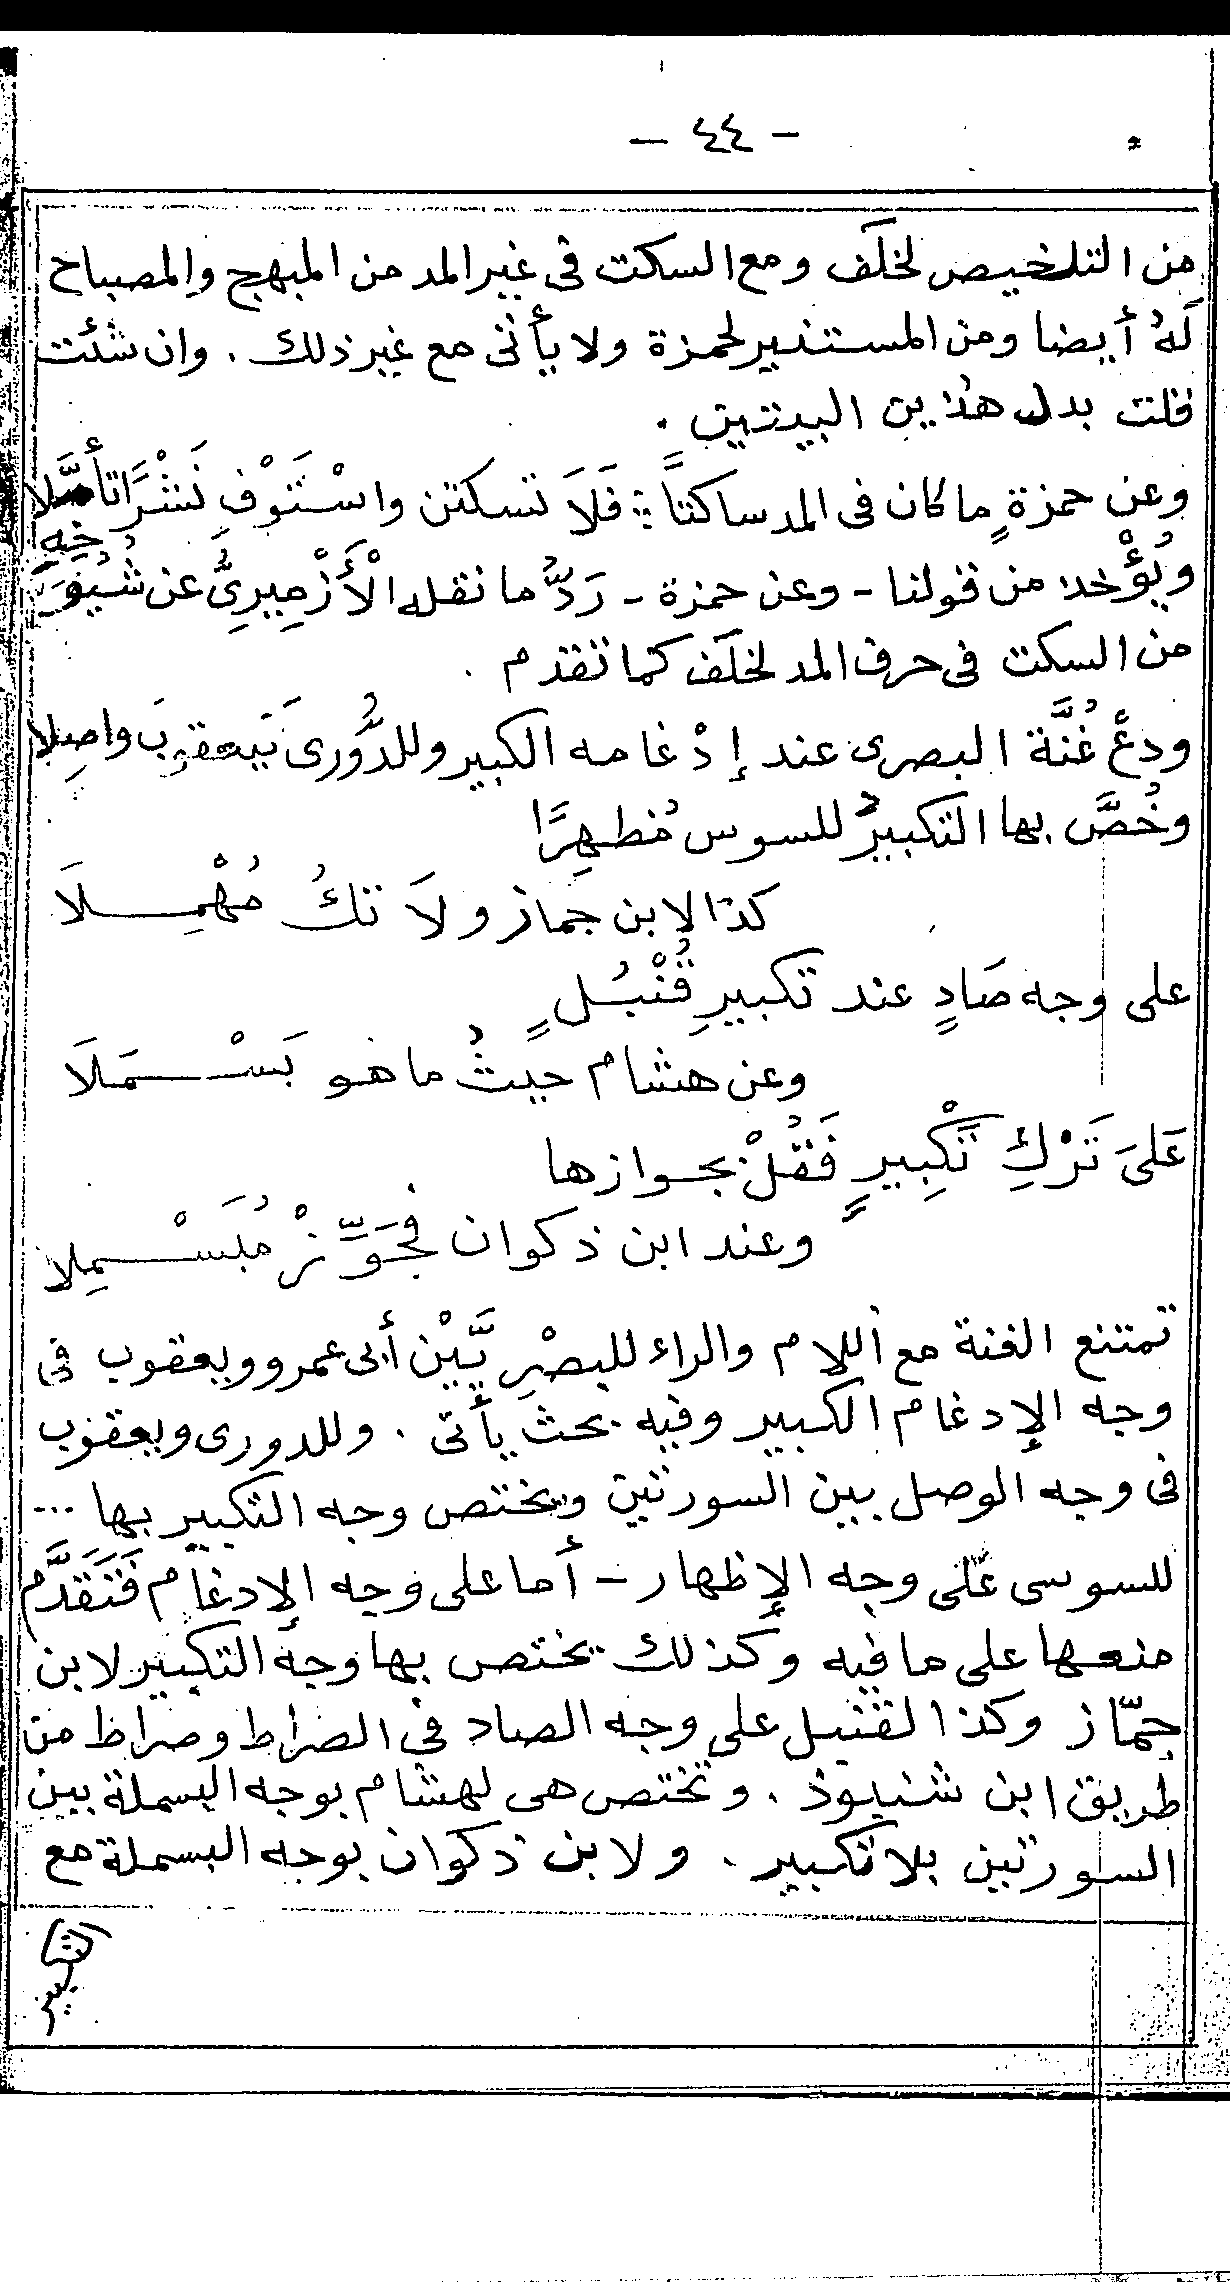 - ٤٤ -
من التلخيص لخلَف ومع السكت فى غير المد من المبهج والمصباح
لَهُ أيضا ومن المستنير لحمزة ولا يأتى مع غير ذلك . وان شئت
قلت بدل هذين البيتين .
وعن حمزةٍ ما كان فى المد ساكتاً :: فَلَا تسكتن واسْتَوْفِ نَشْرًا تأصَّلا
ويُؤْخذ من قولنا - وعن حمزة - رَدُّ ما نقله الْأَزْمِيرِىُّ عن شُيُوخِهِ
من السكت فى حرف المد لخلَف كما تقدم .
ودعْ غُنَّة البصرى عند إدْغامه الكبير وللدُّورى بَيعقوبَ واصِلا
وخُصَّ بها التكبيرُ للسوس مُظهِرًا
كذا لابن جماز ولَا تكُ مُهْمِلَا
على وجه صَادٍ عند تكبيرِ قُنْبُلٍ
وعن هشام حيثُ ما هو بَسْمَلَا
عَلىَ تَرْكِ تَكْبِيرٍ فَقُلْ بجوازها
وعند ابن ذكوان فجَوِّزْ مُبَسْمِلا
تمتنع الغنة مع اللام والراء للبصْرِيَّيْن أبى عمرو ويعقوب فى
وجه الإدغام الكبير وفيه بحث يأتى . وللدورى ويعقوب
فى وجه الوصل بين السورتين ويختص وجه التكبير بها ...
للسوسى على وجه الإظهار - أما على وجه الإدغام فَتَقَدَّم
منعها على ما فيه وكذلك يختص بها وجه التكبير لابن
جمّاز وكذا لقنبل على وجه الصاد فى الصراط وصراط من
طريق ابن شنبوذ . وتختص هى لهشام بوجه البسملة بين
السورتين بلا تكبير . ولابن ذكوان بوجه البسملة مع